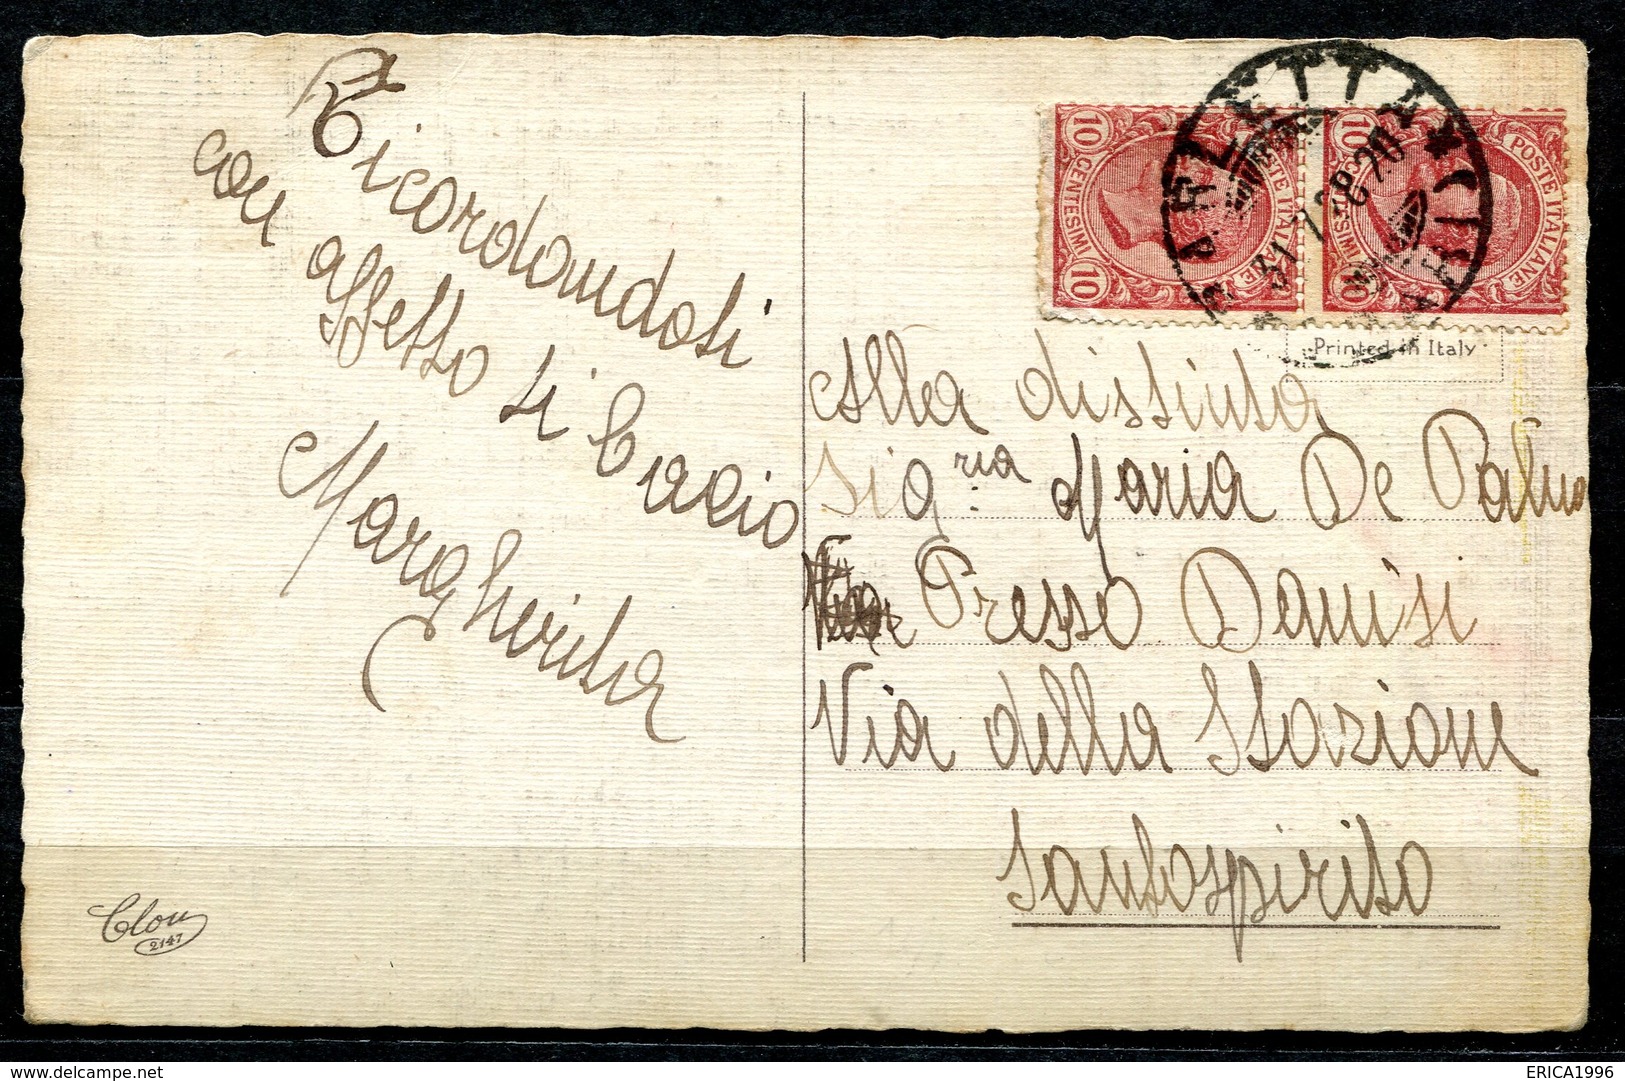 Ricordandoti
con affetto ti bacio
Margherita
Clou
2147
10 CENTESIMI 10
POSTE ITALIANE
10 CENTESIMI 10
POSTE ITALIANE
BARLETTA
31.7.28.20
BARI
Printed in Italy
Alla distinta
Sig.ria Maria De Palma
Presso Danisi
Via della Stazione
Santospirito
delcampe.net
ERICA1996